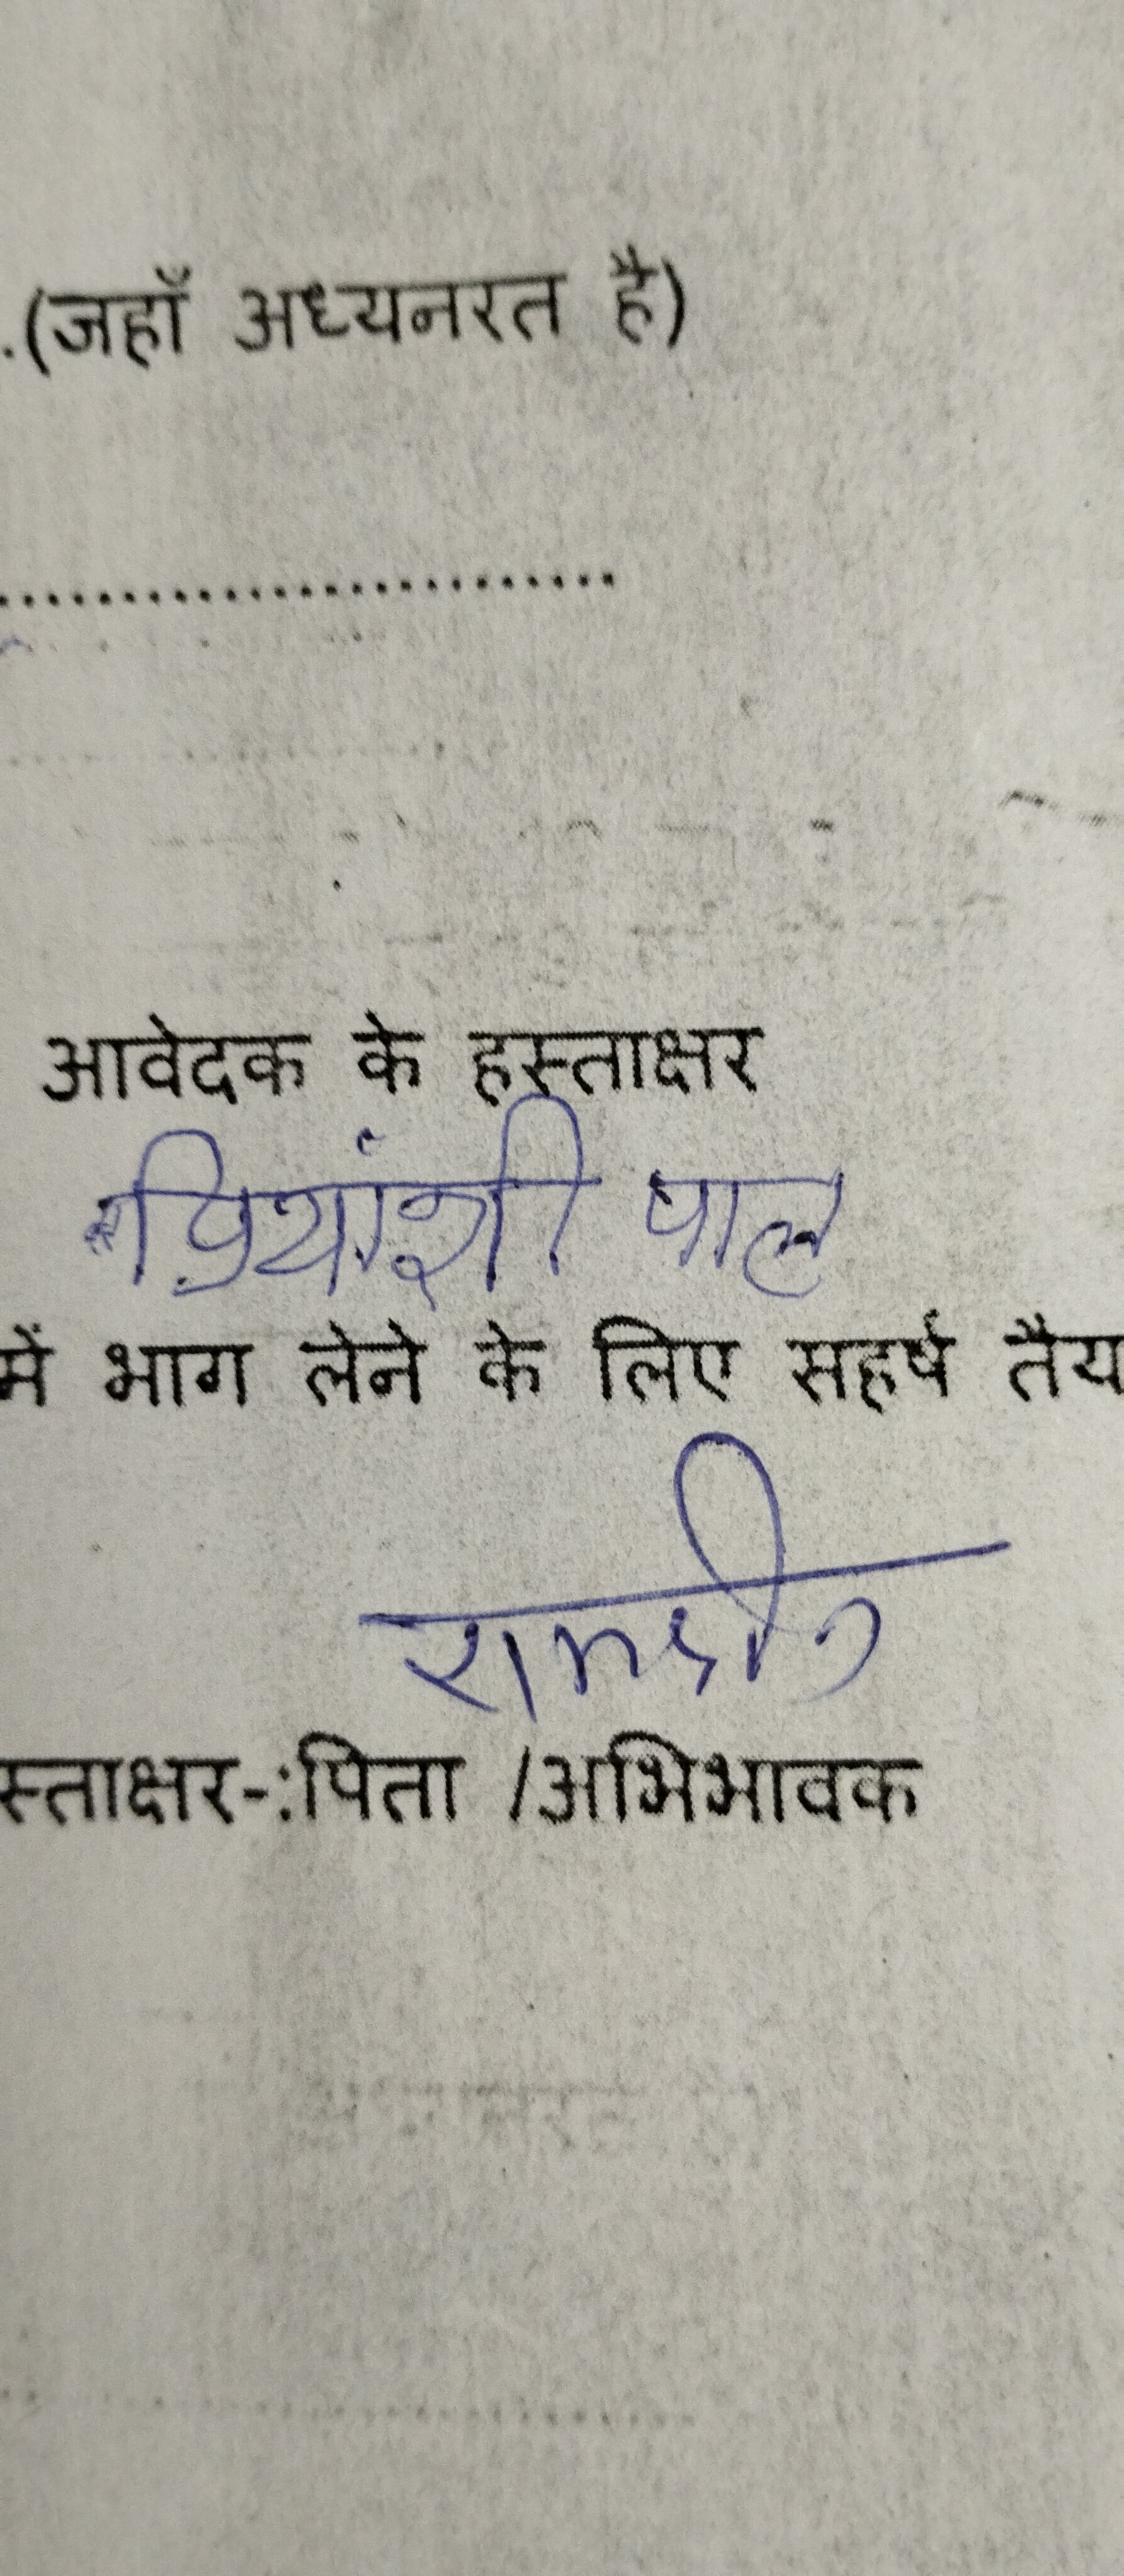 .(जहाँ अध्यनरत है)
................................
आवेदक के हस्ताक्षर
प्रियांशी पाल
में भाग लेने के लिए सहर्ष तैय
स्ताक्षर-:पिता /अभिभावक